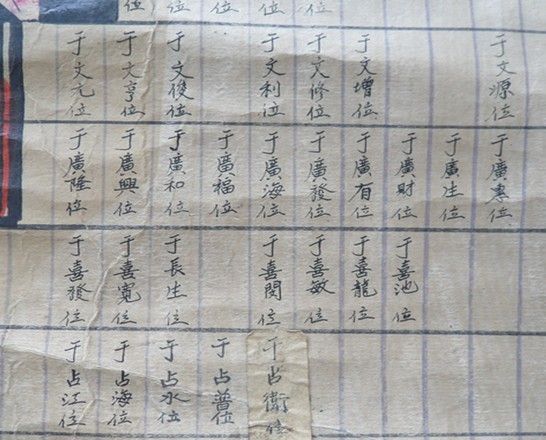 位 位 位 位 位
于文元位 于文亨位 于文俊位 于文利位 于文修位 于文增位 于文源位
于廣隆位 于廣興位 于廣和位 于廣福位 于廣海位 于廣發位 于廣有位 于廣財位 于廣生位 于廣專位
于喜發位 于喜寬位 于長生位 于喜閔位 于喜敏位 于喜龍位 于喜池位
于占江位 于占海位 于占水位 于占普位 于占衛位